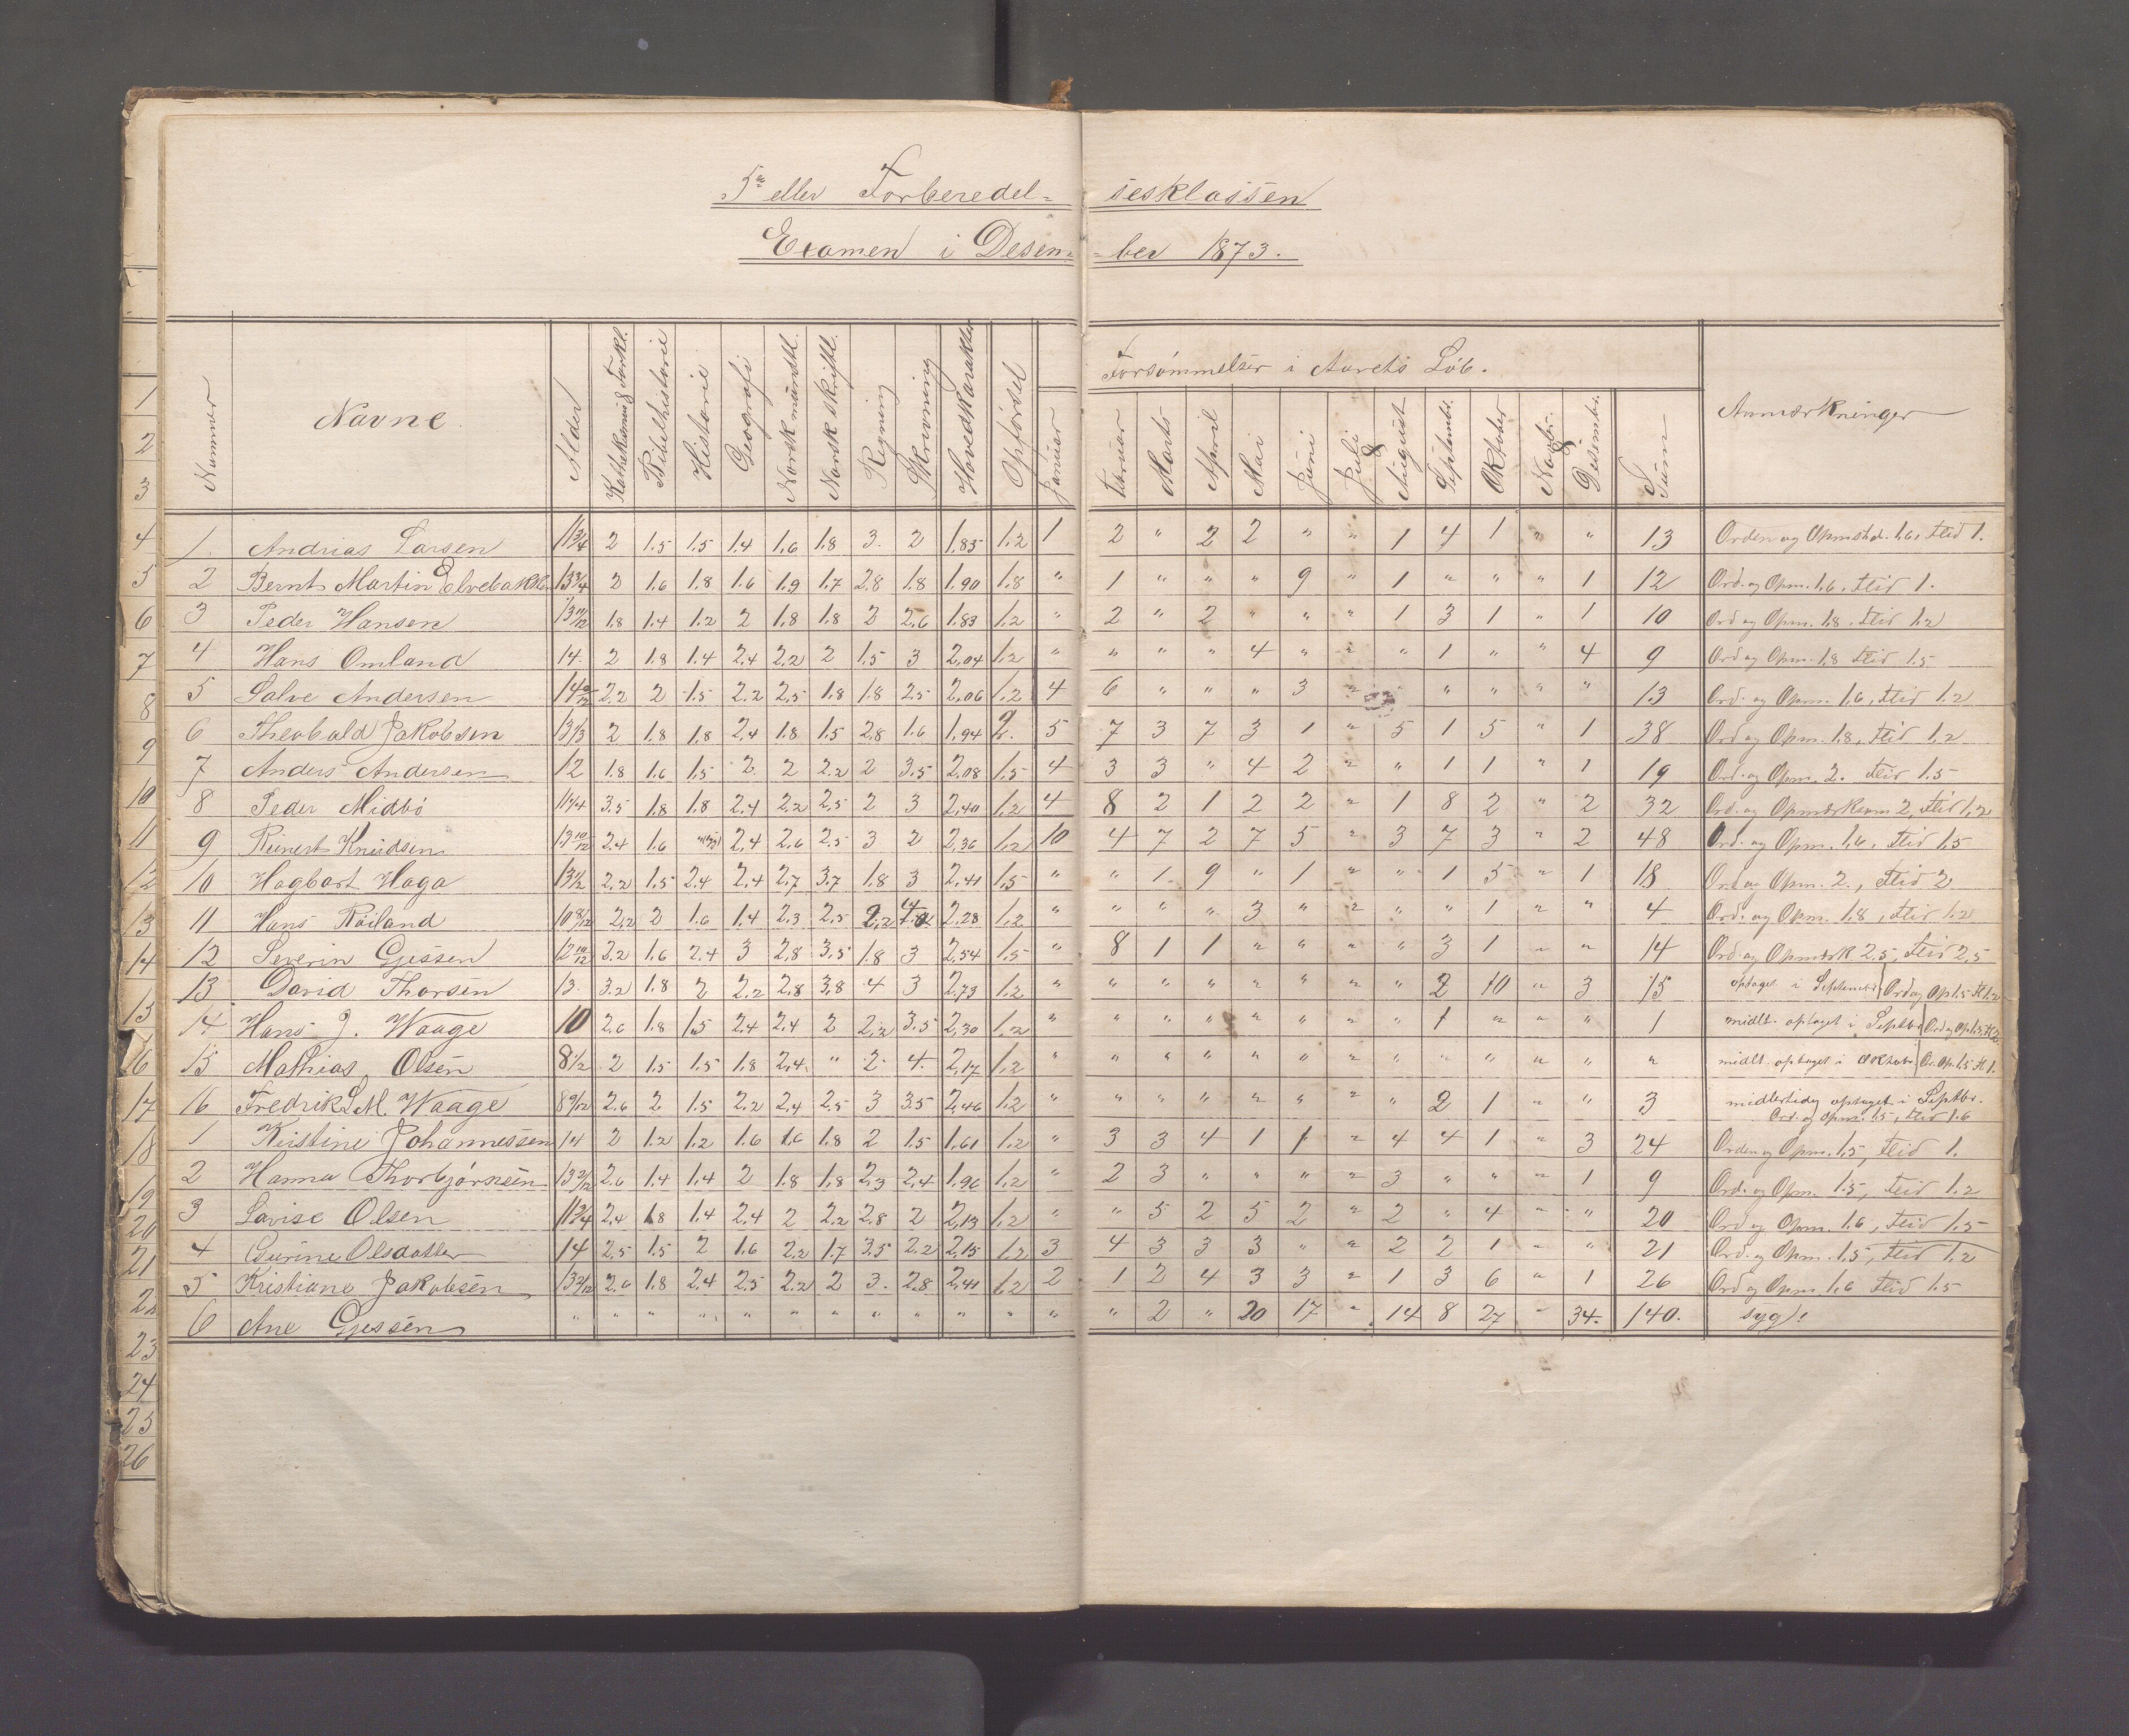 5te eller Forberedel= sesklassen
Examen i Desem= =ber 1873.
Nummer Navne Alder Kathekismus Forkl. Bibelhistorie Historie Geografi Norsk mündtl. Norsk skriftl. Regning Skrivning Hovedkarakter Opførsel Januar Februar Marts April Mai Juni Juli & August Septembr. Oktober Novbr. & Desembr. Sum Anmærkninger
Forsømmelser i Aarets Løb.
1. Andrias Larsen 11 3/4 2 1.5 1.5 1.4 1.6 1.8 3. 2 1.85 1.2 1 2 " 2 2 " " 1 4 1 " " 13 Orden og Opmskd. 1.6, Flid 1.
2 Bernt Martin Elvebakken 13 3/4 2 1.6 1.8 1.6 1.9 1.7 2.8 1.8 1.90 1.8 " 1 " " " 9 " 1 " " " 1 12 Ord. og Opm. 1.6, Flid 1.
3 Peder Hansen 13 10/12 1.8 1.4 1.2 2 1.8 1.8 2 2.6 1.83 1.2 " 2 " 2 " " " 1 3 1 " 1 10 Ord og Opm. 1.8, Flid 1.2
4 Hans Omland 14. 2 1.8 1.4 2.4 2.2 2 1.5 3 2,04 1.2 " " " " 4 " " " 1 " " 4 9 Ord og Opm. 1.8 Flid 1.5
5 Salve Andersen 14 2.2 2 1.5 2.2 2.5 1.8 1.8 2.5 2,06 1.2 4 6 " " " 3 " " " " " 13 Ord. og Opm. 1.6, Flid 1.2
6 Theobald Jakobsen 13 1/3 2 1.8 1.8 2.4 1.8 1.5 2.8 1.6 1,94 2. 5 7 3 7 3 1 " 5 1 5 " 1 38 Ord og Opm. 1.8, Flid 1.2
7 Anders Andersen 12 1.8 1.6 1.5 2. 2 2.2 2 3.5 2,08 1.5 4 3 3 " 4 2 " " 1 1 " 1 19 Ord. og Opm. 2. Flid 1.5
8 Peder Midbö 11 1/4 3.5 1.8 1.8 2.4 2.2 2,5 2 3 2,40 1.2 4 8 2 1 2 2 " 1 8 2 " 2 32 Ord. og Opmærksom 2, Flid 1,2
9 Reinert Knüdsen 13 10/12 2.4 1.6 2,4 2.6 2.5 3 2 2,36 1.2 10 4 7 2 7 5 " 3 7 3 " 2 48 Ord. og Opm. 1.6, Flid 1.5
10 Hagbart Haga 13 1/2 2.2 1.5 2.4 2.4 2,7 3.7 1.8 3 2,41 1.5 " " 1 9 " 1 " " 1 5 " 1 18 Ord og Opm. 2., Flid 2
11 Hans Röiland 10 8/12 2,2 2 1.6 1.4 2.3 2.5 2,2 2,28 1,2 " " " " 3 " " " " 1 " " 4 Ord. og Opm. 1.8, Flid 1.2
12 Severin Gjessen 12 10/12 3.2 1.6 2.4 3 2,8 3.5 1.8 3 2,54 1.5 " 8 1 1 " " " " 3 1 " " 14 Ord. og Opmærk 2.5, Flid 2,5
13 David Thorsen 13. 3.2 1.8 2 2.2 2.8 3,8 4 3 2,73 1.2 " " " " " " " " 2 10 " 3 15 optaget i Septembr Ord og Op 1.5 Fl. 1.2
14 Hans J. Waage 10 2.6 1.8 1.5 2.4 2.4 2 2,2 3.5 2,30 1.2 " " " " " " " " 1 " " " 1 midlt. optaget i Septbr. Ord og Op. 1.5 Fl. 2.
15 Mathias Olsen 8 1/2 2 1.5 1.5 1.8 2,4. " 2. 4. 2,17 1.2 " " " " " " " " " " " " " midlt. optaget i Oktober Or. Op. 1.5 Fl. 1.
16 Fredrik L M. Waage 8 9/12 2.6 2 1.5 2.2 2,4 2.5 3 3.5 2,46 1.2 " " " " " " " " 2 1 " " 3 midlertidig optaget i Septbr.
Ord. og Opm. 1.5, Flid 1.6
1 Kristine Johannessen 14 2 1.2 1.2 1.6 1.6 1.8 2 1.5 1,61 1.2 " 3 3 4 1 1 " 4 4 1 " 3 24 Orden og Opm. 1.5, Flid 1.
2 Hanna Thorbjörnsen 13 2/12 2.6 1.4 1.4 2 1.8 1.8 2,3 2,4 1,96 1.2 " 2 3 " " " " 3 " " " 1 9 Ord. og Opm. 1.5, Flid 1.2
3 Lovise Olsen 11 3/4 2.4 1.8 1.4 2.4 2 2.2 2.8 2 2,13 1.2 " " 5 2 5 2 " 2 " 4 " " 20 Ord og Opm. 1.6, Flid 1.5
4 Gurine Olsdatter 14 2,5 1.5 2 1.6 2.2 1.7 3.5 2.2 2,15 1.2 3 4 3 3 3 " " 2 2 1 " " 21 Ord. og Opm. 1.5, Flid 1.2
5 Kristiane Jakobsen 13 2/12 2.6 1.8 2.4 2.5 2.2 2 3. 2.8 2,41 1.2 2 1 2 4 3 3 " 1 3 6 " 1 26 Ord og Opm. 1.6 Flid 1.5
6 Ane Gjessen " " " " " " " " " " " " " 2 " 20 17 " 14 8 27 " 34. 140. syg!
1
2
3
4
5
6
7
8
9
10
11
12
13
14
15
16
17
18
19
20
21
22
23
24
25
26